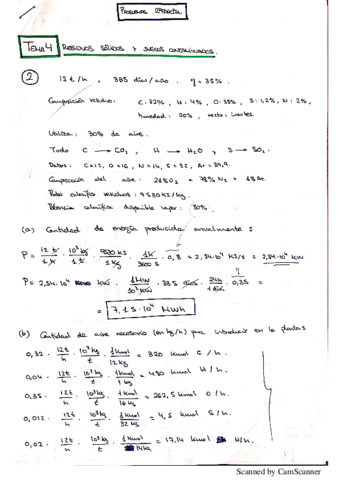 PROBLEMAS 2º PARCIAL
TEMA 4 RESIDUOS SÓLIDOS Y SUELOS CONTAMINADOS.
2 12 t/h , 335 días/año . η = 35%.
Composición residuo: C: 32%, H: 4%, O: 35%, S: 1,2%, N: 2%,
humedad: 20%, resto: inertes.
Utiliza: 30% de aire.
Todo C → CO2, H → H2O, S → SO2.
Datos: C=12, O=16, N=14, S=32, Ar=39,9.
Composición del aire: 21% O2 78% N2 1% Ar.
Poder calorífico residuos: 9530 KJ/kg.
Potencia calorífica disponible vapor: 80%.
(a) Cantidad de energía producida anualmente:
P = 12 t / 1 h · 10³ kg / 1 t · 9530 KJ / 1 kg · 1 h / 3600 s · 0,8 = 2,54·10⁴ KJ/s = 2,54·10⁴ kW
P = 2,54·10⁴ kW · 1 MW / 10³ kW · 335 días · 24h / 1 día · 0,35 =
= 7,15·10⁴ MWh
(b) Cantidad de aire necesario (en kg/h) por introducir en la planta
0,32 · 12t/h · 10³kg/t · 1kmol/12kg = 320 kmol C/h.
0,04 · 12t/h · 10³kg/t · 1kmol/1kg = 480 kmol H/h.
0,35 · 12t/h · 10³kg/t · 1kmol/16kg = 262,5 kmol O/h.
0,012 · 12t/h · 10³kg/t · 1kmol/32kg = 4,5 kmol S/h.
0,02 · 12t/h · 10³kg/t · 1kmol/14kg = 17,14 kmol N/h.
Scanned by CamScanner